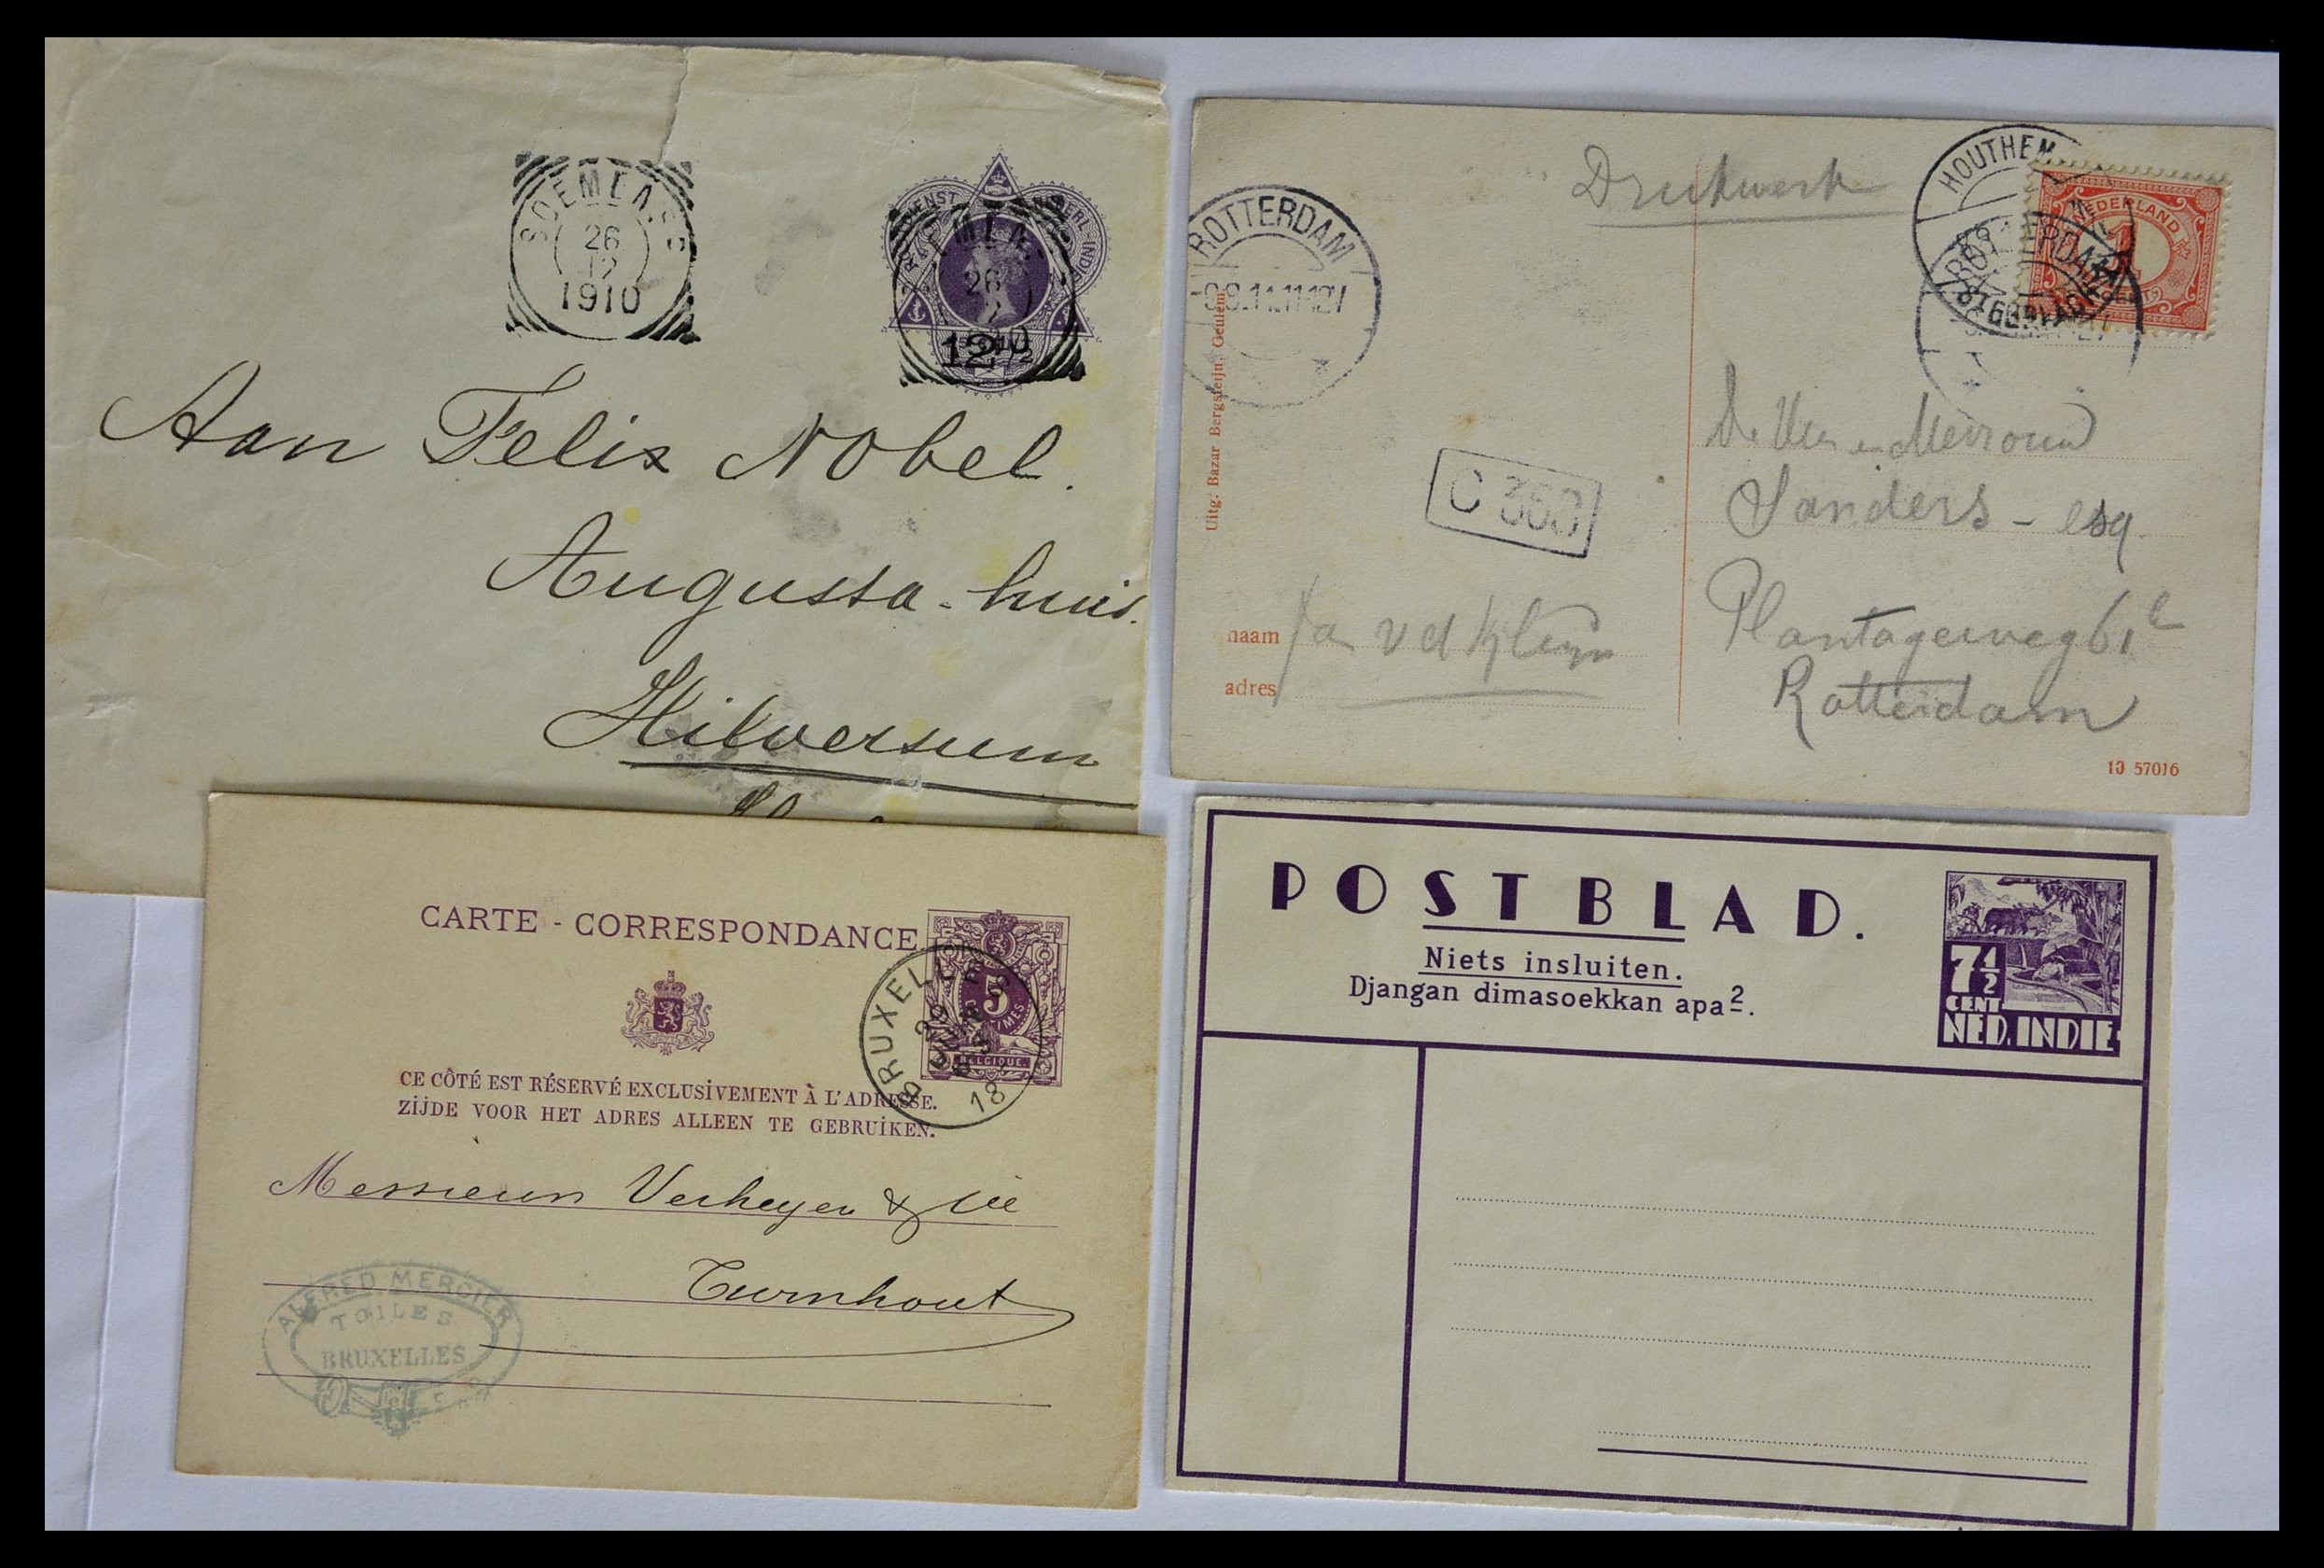 SOEMENEP
26
12
1910
12½
Aan Felix Nobel.
Augusta-huis.
Hilversum
ROTTERDAM
Drukwerk
HOUTHEM
NEDERLAND
1
CENT
Uitg. Bazar Bergsteijn, Geulem
C 360
naam
adres
Sanders - esq.
Plantageweg 61
Rotterdam
10 57016
CARTE - CORRESPONDANCE
BRUXELLES
5
CENTIMES
BELGIQUE
CE CÔTÉ EST RÉSERVÉ EXCLUSIVEMENT À L'ADRESSE.
ZIJDE VOOR HET ADRES ALLEEN TE GEBRUIKEN.
Messieurs Verheyen & Cie
Turnhout
ALFRED MERCIER
TOILES
BRUXELLES
POSTBLAD.
Niets insluiten.
Djangan dimasoekkan apa2.
7½
CENT
NED. INDIE